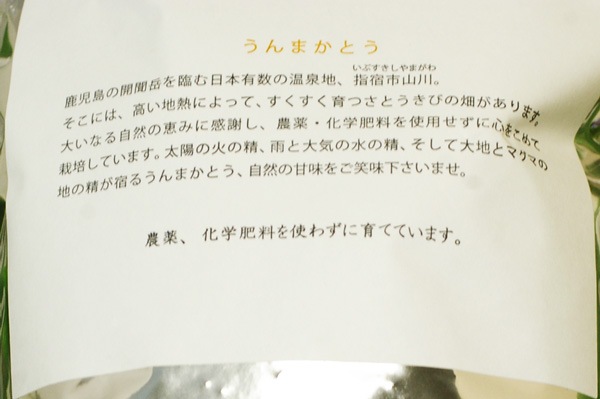 うんまかとう
いぶすきしやまがわ
鹿児島の開聞岳を臨む日本有数の温泉地、指宿市山川。
そこには、高い地熱によって、すくすく育つさとうきびの畑があります。
大いなる自然の恵みに感謝し、農薬・化学肥料を使用せずに心をこめて
栽培しています。太陽の火の精、雨と大気の水の精、そして大地とマグマの
地の精が宿るうんまかとう、自然の甘味をご笑味下さいませ。
農薬、化学肥料を使わずに育てています。